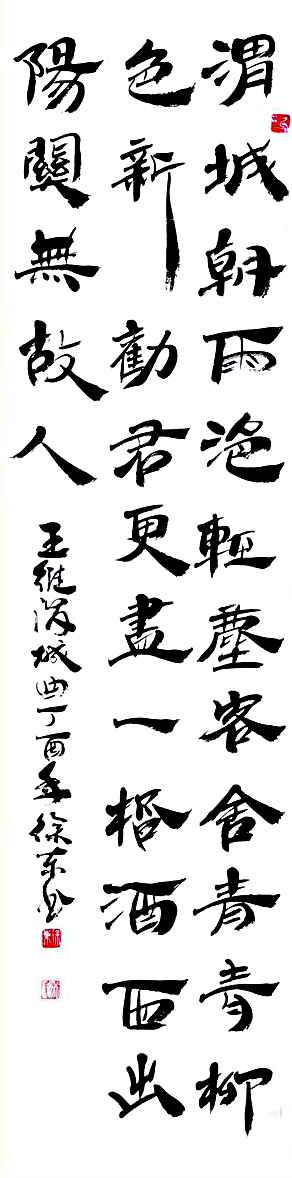 渭城朝雨浥輕塵客舍青青柳
色新勸君更盡一桮酒西出
陽關無故人
王維渭城曲丁酉年徐东书